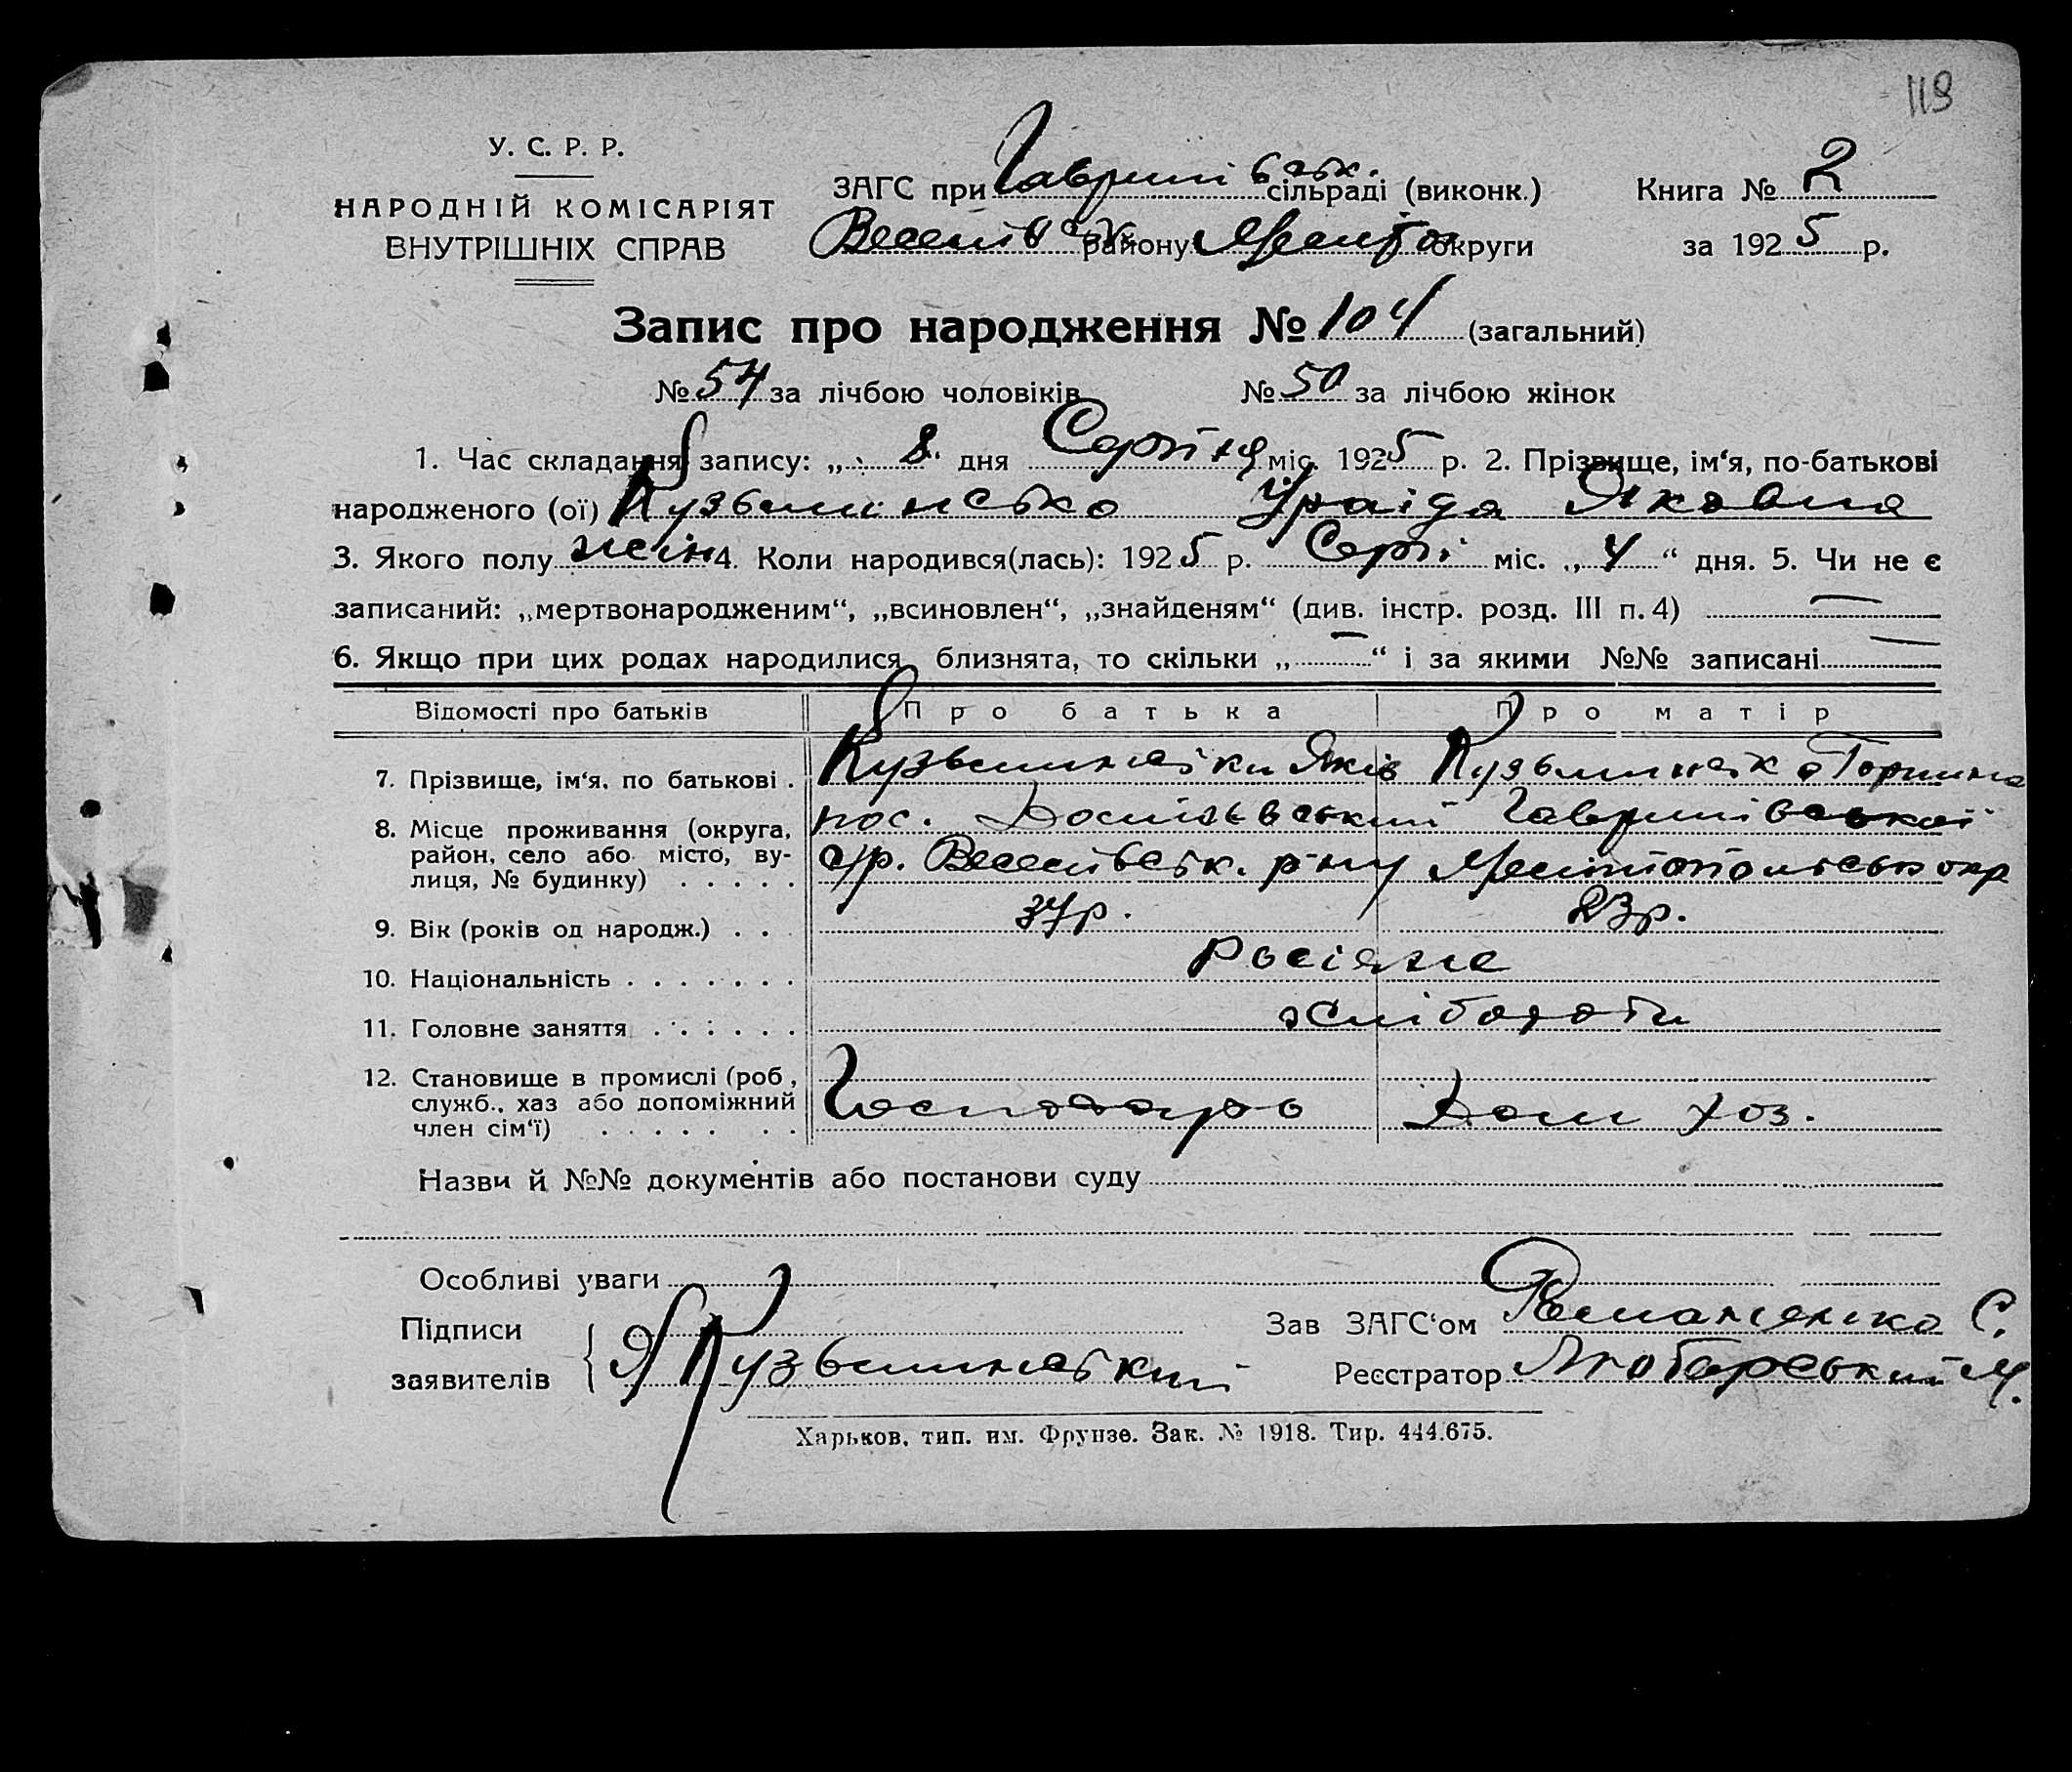 119
У. С. Р. Р.
НАРОДНІЙ КОМІСАРІЯТ
ВНУТРІШНІХ СПРАВ
ЗАГС при Гаврилівськ. сільраді (виконк.)
Веселівськ району Меліто округи
Книга № 2
за 1925 р.
Запис про народження № 104 (загальний)
№ 54 за лічбою чоловіків № 50 за лічбою жінок
1. Час складання запису: „ 8 " дня Серпня міс. 1925 р. 2. Прізвище, ім'я, по-батькові
народженого (ої) Кузьминсько Іраіда Яковна
3. Якого полу жін 4. Коли народився(лась): 1925 р. Серпі міс. „ 4 " дня. 5. Чи не є
записаний: „мертвонародженим“, „всиновлен“, „знайденям“ (див. інстр. розд. III п. 4) —
6. Якщо при цих родах народилися близнята, то скільки „ — “ і за якими №№ записані —
Відомості про батьків Про батька Про матір
7. Прізвище, ім'я, по батькові . Кузьминськи Яків Кузьминська Горпина
8. Місце проживання (округа, район, село або місто, вулиця, № будинку) . . . . . пос. Гаврилівської
с/р. Веселівськ. р-ну Мелітопольськ окр
9. Вік (років од народж.) . . . 37р. 23р.
10. Національність . . . . . . . Росіяне
11. Головне заняття . . . . . . хлібороби
12. Становище в промислі (роб, служб., хаз або допоміжний член сім'ї) . . . . . . . Господарь Дом хоз.
Назви й №№ документів або постанови суду
Особливі уваги
Підписи
заявителів
Я Кузьминський
Зав ЗАГС'ом Романенко С.
Реєстратор М.
Харьков, тип. им. Фрунзе. Зак. № 1918. Тир. 444.675.